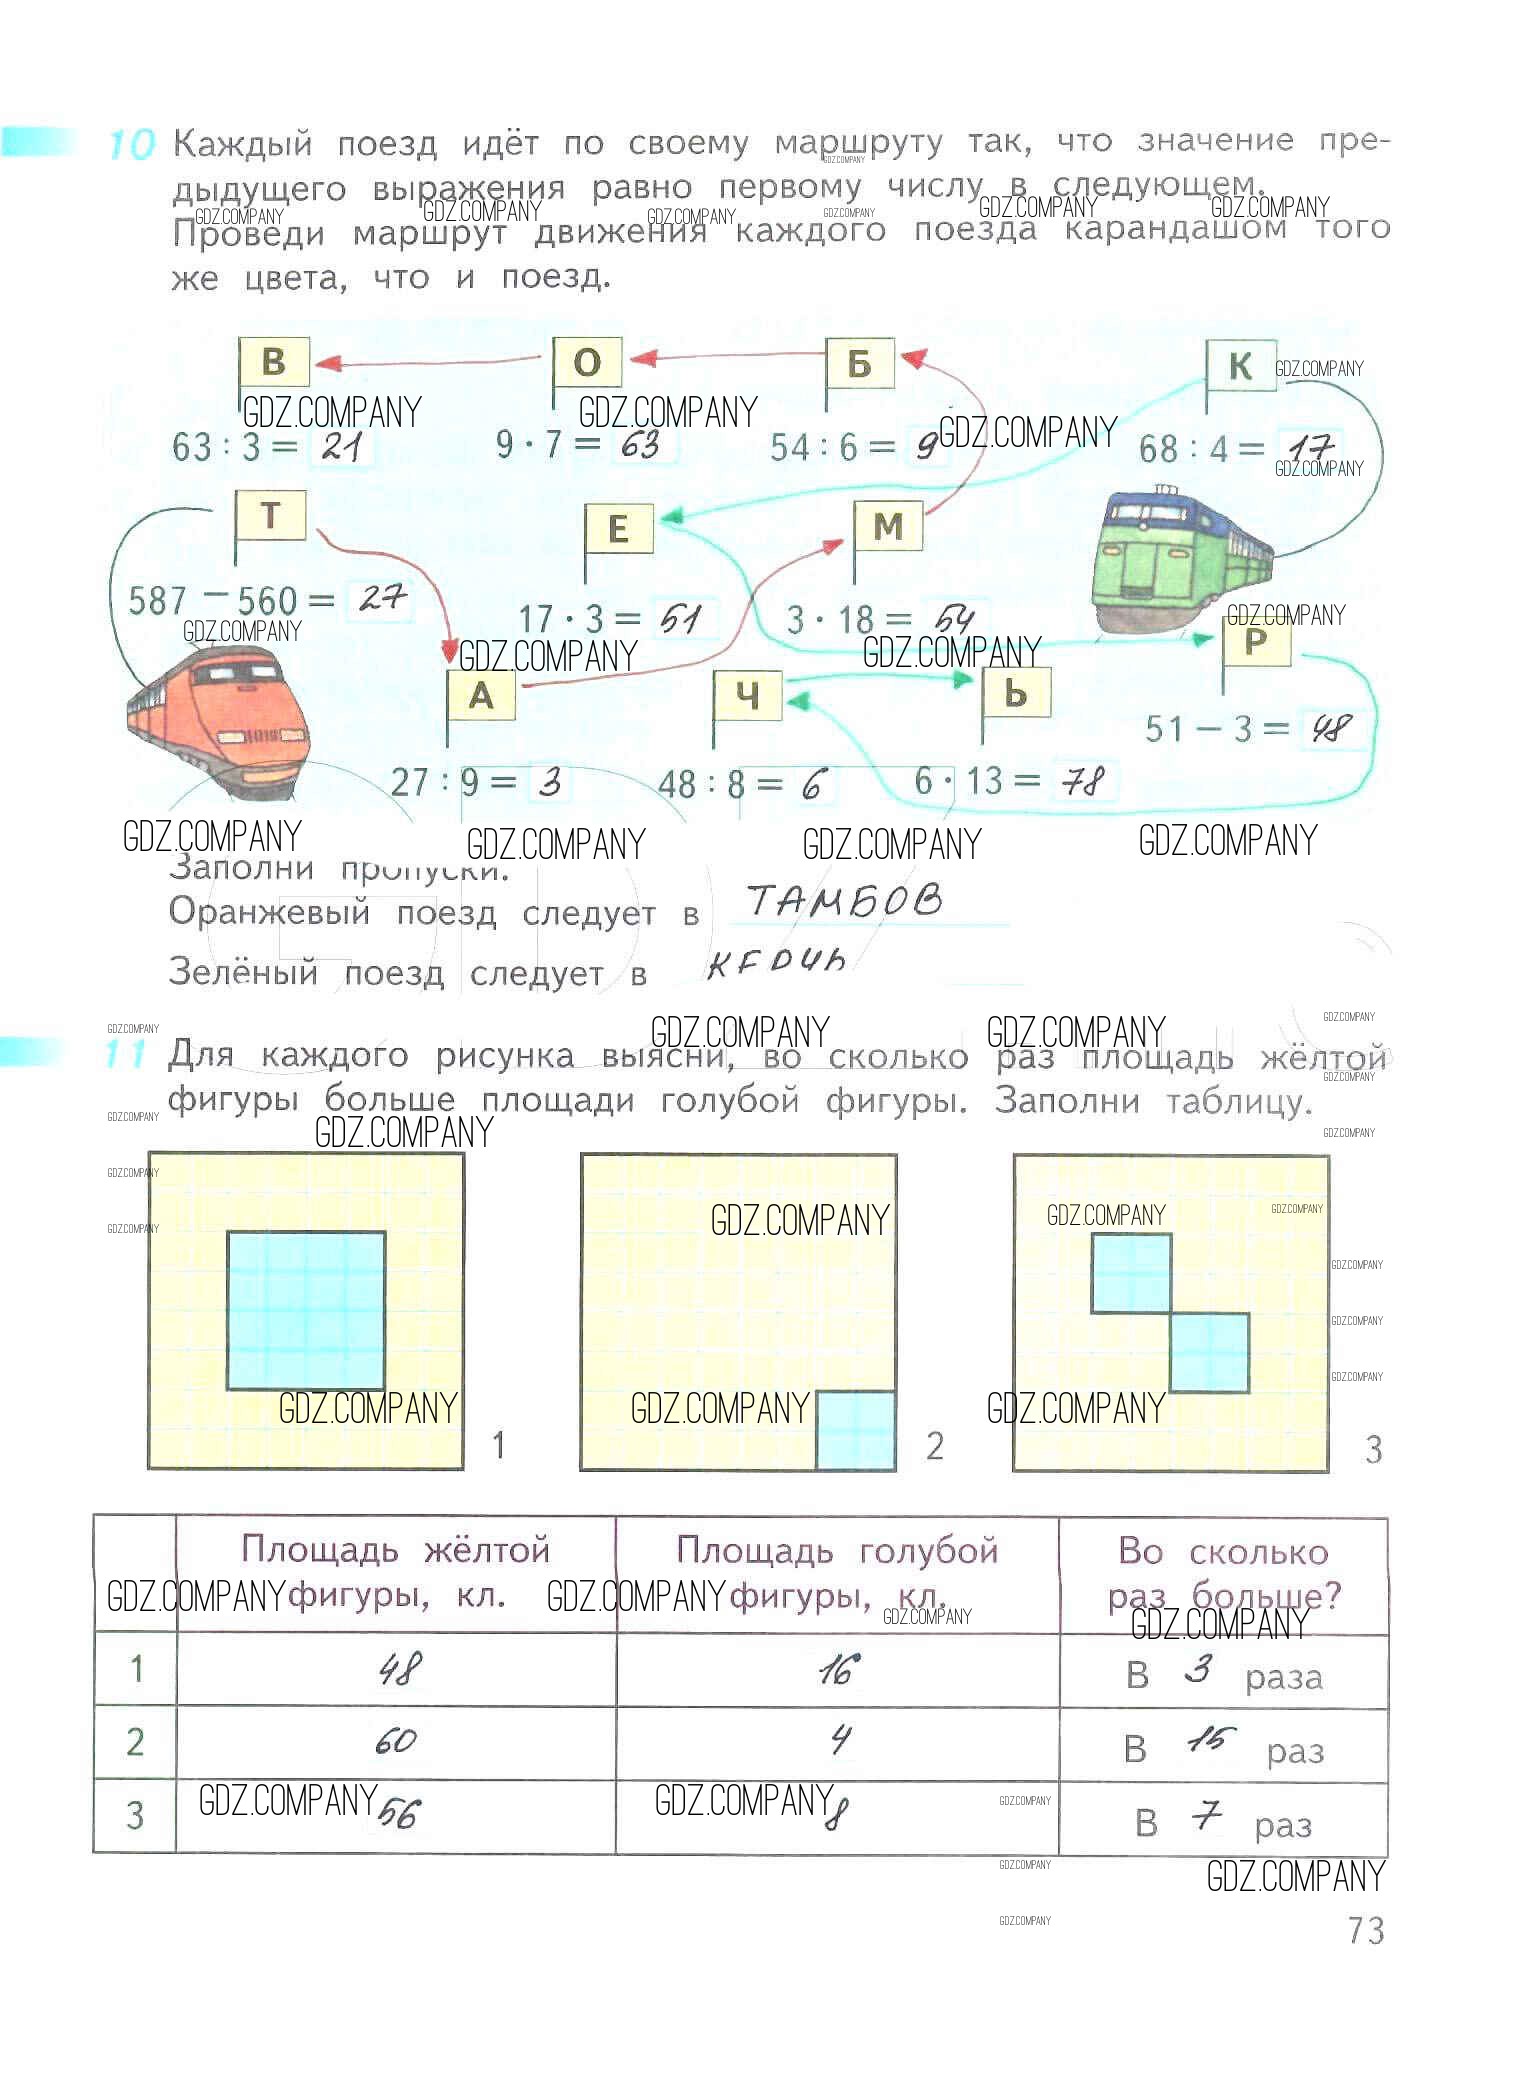 10 Каждый поезд идёт по своему маршруту так, что значение пре-
дыдущего выражения равно первому числу в следующем.
Проведи маршрут движения каждого поезда карандашом того
же цвета, что и поезд.
В О Б К
63 : 3 = 21 9 · 7 = 63 54 : 6 = 9 68 : 4 = 17
Т Е М
587 − 560 = 27 17 · 3 = 51 3 · 18 = 54
Р
51 − 3 = 48
А Ч Ь
27 : 9 = 3 48 : 8 = 6 6 · 13 = 78
GDZ.COMPANY GDZ.COMPANY GDZ.COMPANY GDZ.COMPANY
Заполни пропуски.
Оранжевый поезд следует в ТАМБОВ
Зелёный поезд следует в КЕРЧЬ
GDZ.COMPANY GDZ.COMPANY
11 Для каждого рисунка выясни, во сколько раз площадь жёлтой
фигуры больше площади голубой фигуры. Заполни таблицу.
GDZ.COMPANY
1 2 3
Площадь жёлтой фигуры, кл. Площадь голубой фигуры, кл. Во сколько раз больше?
1 48 16 В 3 раза
2 60 4 В 15 раз
3 56 8 В 7 раз
GDZ.COMPANY
73